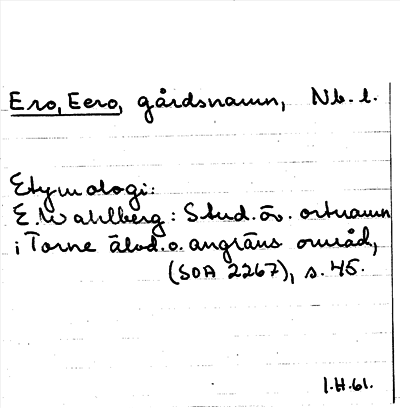 Ero, Eero, gårdsnamn, Nb. l.
Etymologi:
E. Wahlberg: Stud. öv. ortnamn
i Torne älvd. o. angräns område,
(SOA 2267), s. 45.
I.H.61.